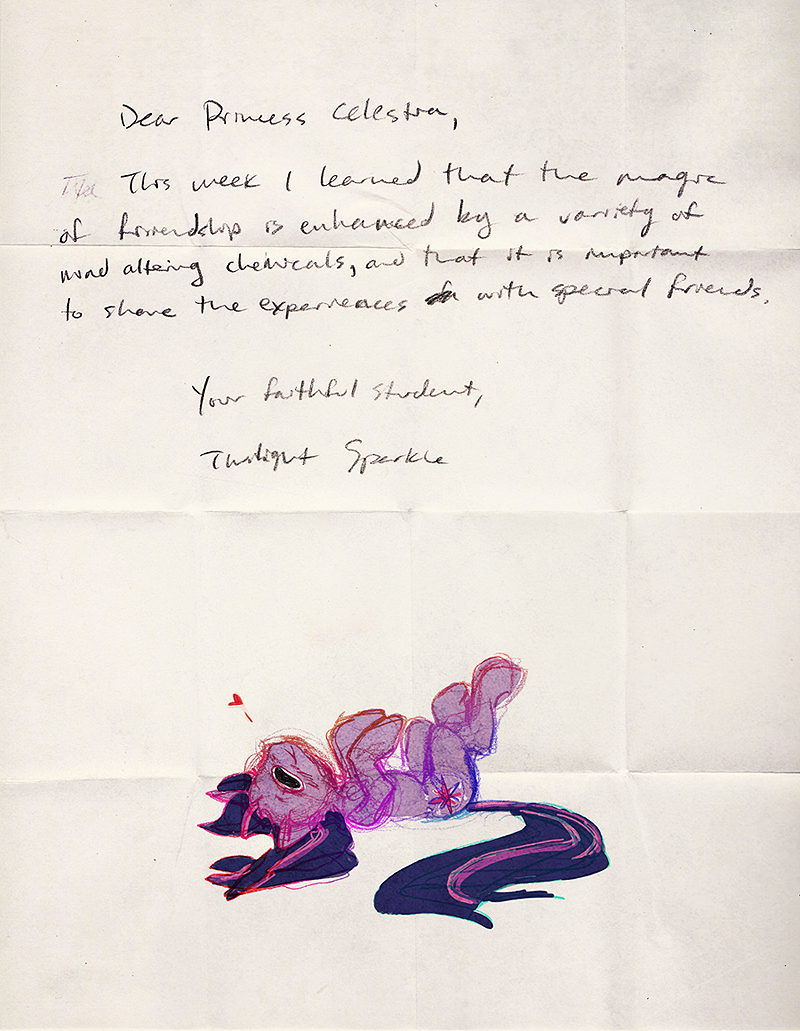 Dear Princess Celestia,
This week I learned that the magic
of friendship is enhanced by a variety of
mind altering chemicals, and that it is important
to share the experiences with special friends.
Your faithful student,
Twilight Sparkle